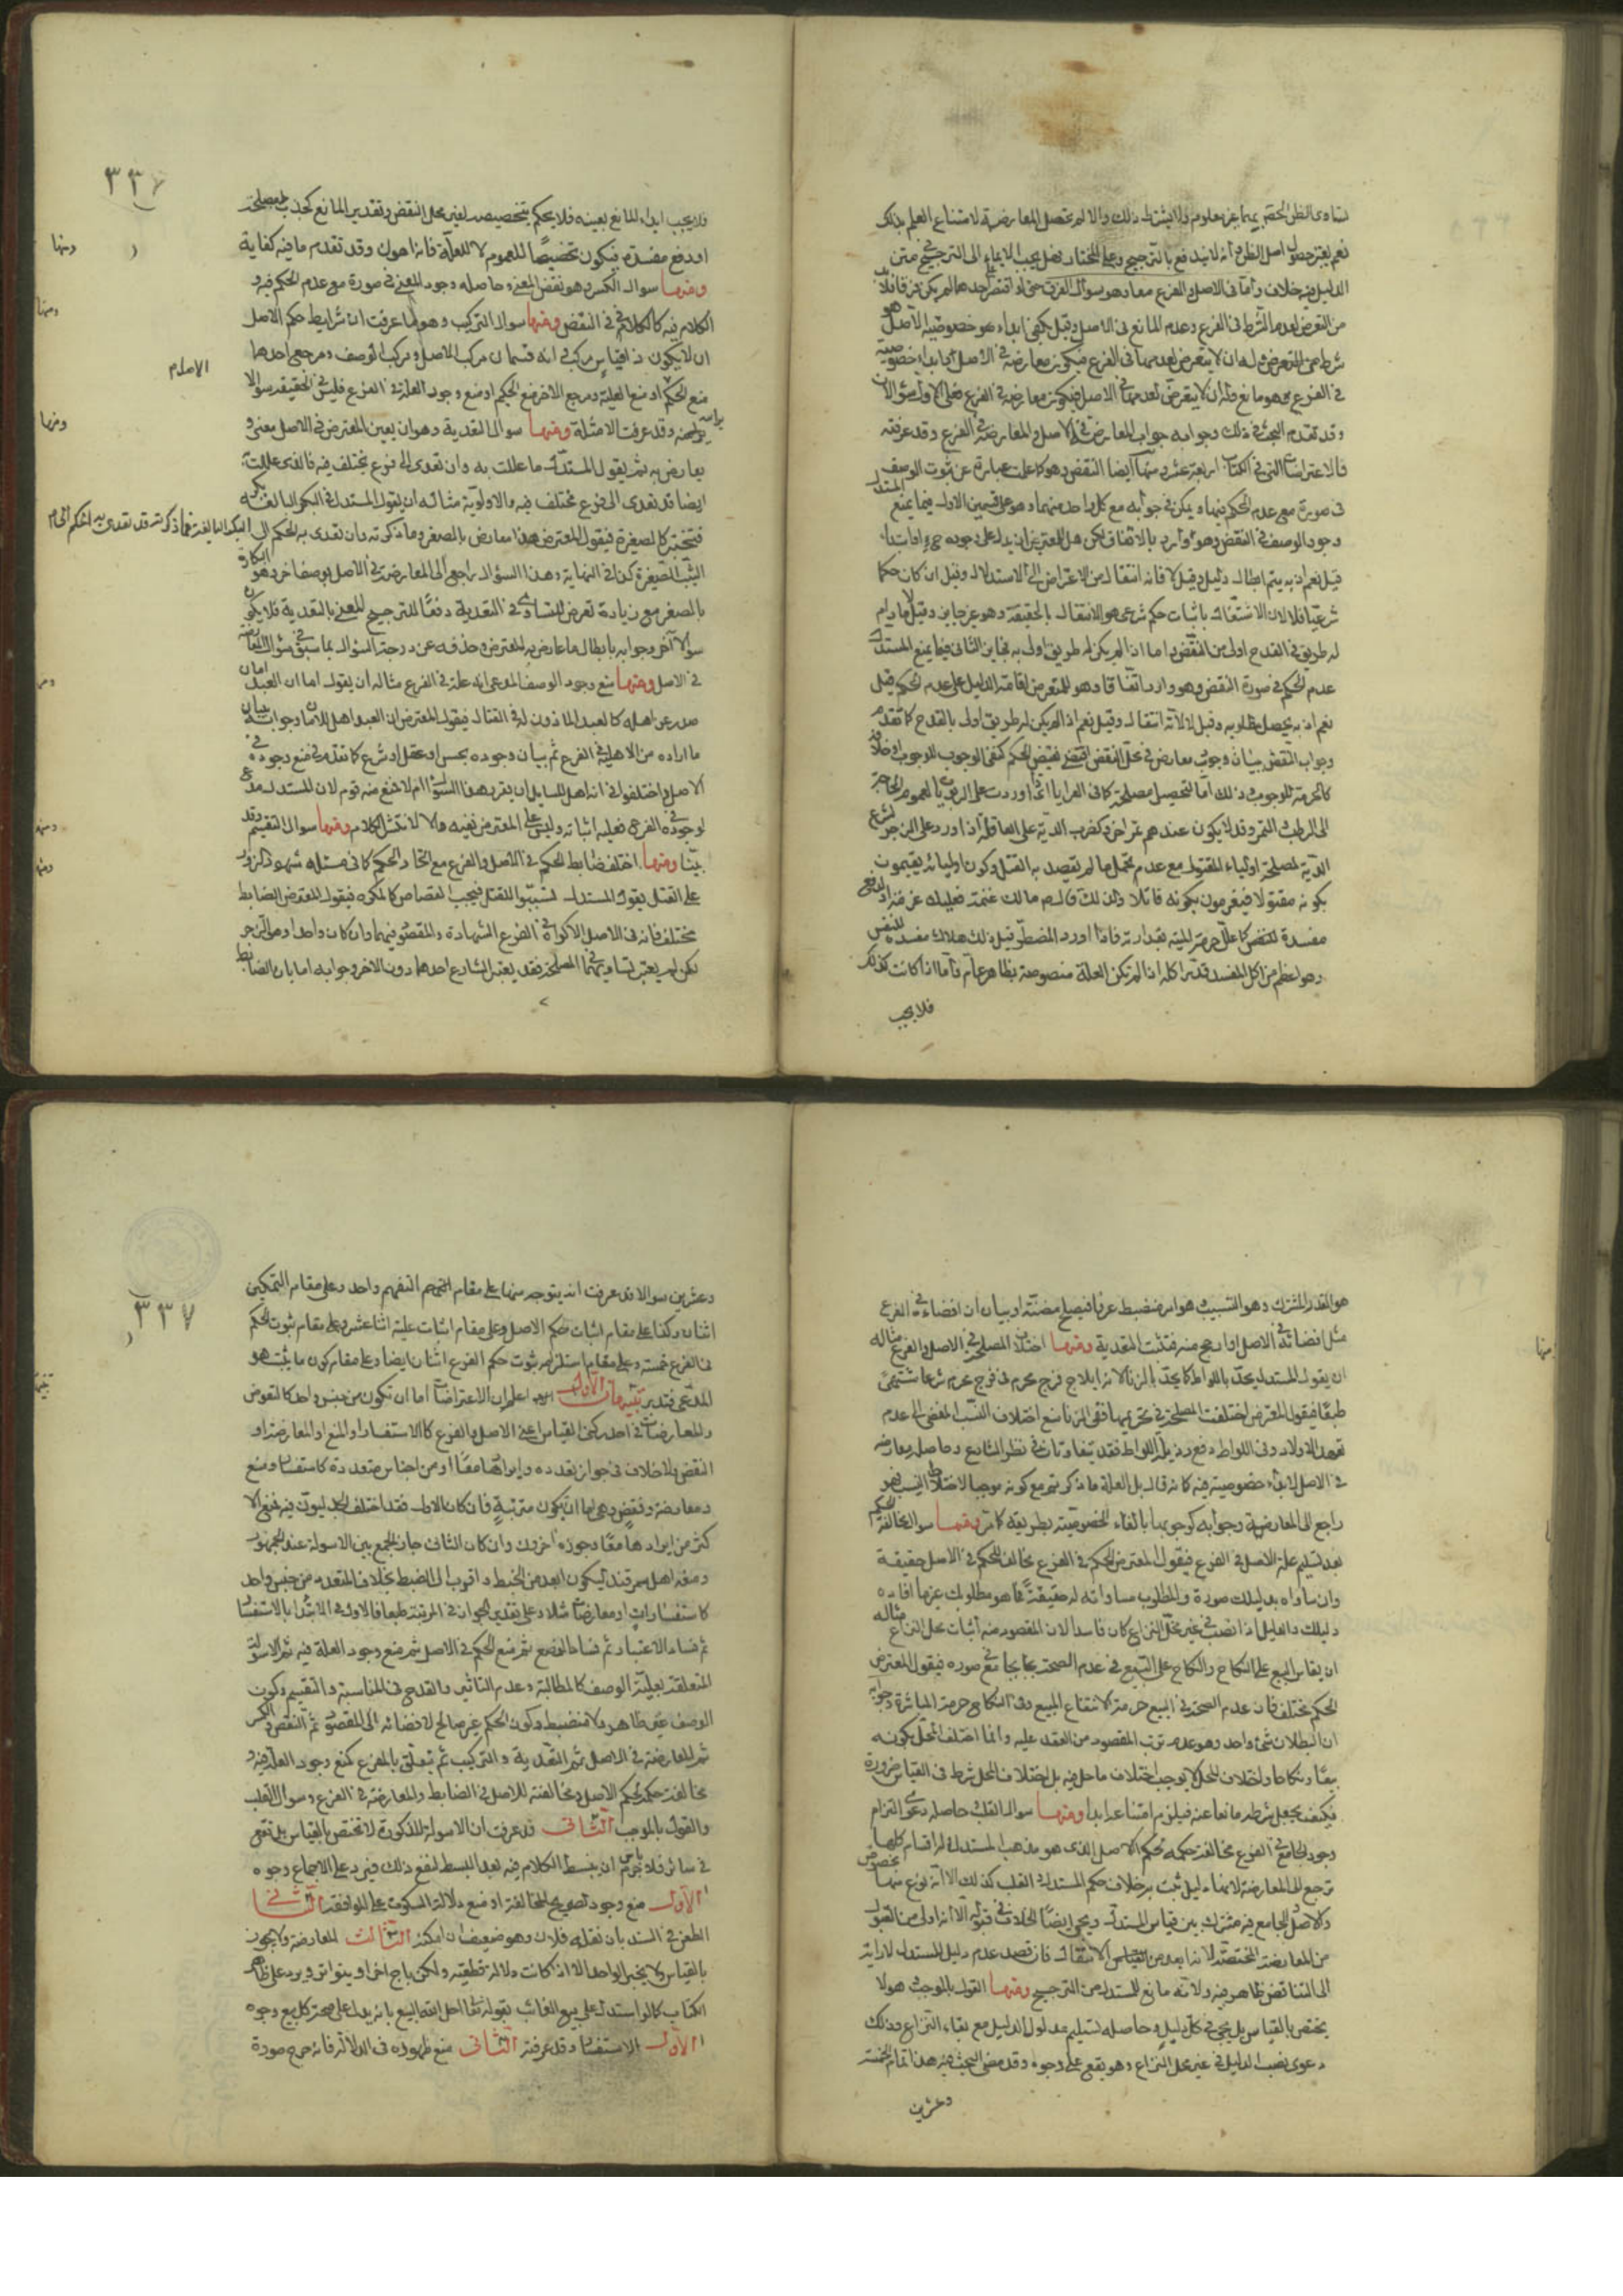 نعم يعتبر حصول اصل الظن وانه لا يندفع بالترجيح وعلى المختار فهل يجب الايماء الى الترجيح في متن
الدليل فيه خلاف واما في الاصل والفرع معا وهو سؤال الفرق
من التعرض لعدم الشرط في الفرع وعدم المانع في الاصل وقيل يكفي ابداء هو خصوصية الاصل
وقد تقدم البحث في ذلك وجوابه جواب المعارضة في الاصل والمعارضة في الفرع وقد عرفته
فالاعتراضات التي في الكتاب اربعة عشر ومنها ايضا النقض وهو كما علمت عبارة عن ثبوت الوصف
في صورة مع عدم الحكم فيها ويمكن في جوابه مع كل واحد منهما وهو على قسمين الاول فيما يمنع المستدل
وجود الوصف في النقض وهو وارد بالاتفاق لكن هل للمعترض ان يدل على وجوده
قيل نعم اذ به يتم ابطال دليله وقيل لا فانه انتقال من الاعتراض الى الاستدلال وقيل ان كان حكما
شرعيا فلا لان الاشتغال باثبات حكم شرعي هو الانتقال بالحقيقة وهو غير جايز وقيل لا ما دام
له طريق في القدح اولى من النقض واما اذا لم يكن له طريق اولى به فجايز الثاني فيما يمنع المستدل
عدم الحكم في صورة النقض وهو وارد اتفاقا وهو للمعترض اقامة الدليل على عدم الحكم قيل
نعم اذ به يحصل مطلوبه وقيل لا لانه انتقال وقيل نعم اذا لم يكن له طريق اولى بالقدح كما تقدم
وجواب النقض ببيان وجود معارض في محل النقض اقتضى نقيض الحكم كنفي الوجوب للوجوب او خلافه
كالحرمة للوجوب وذلك اما لتحصيل مصلحة كما في العرايا اذا اوردت على الربويات لعموم الحاجة
الى الرطب والتمر وقد لا يكون عندهم ثمن اخر وكضرب الدية على العاقلة اذا اورد على الزجر لشرع
الدية لمصلحة اولياء المقتول مع عدم تحمل ما لم يقصد به القتل وكون اوليائه يغنمون
بكونه مقتولا فيغرمون بكونه قاتلا ولذلك قال صلعم مالك غنمه فعليك غرمه او لدفع
مفسدة للنفس كما علل حرمة الميتة بقذارته فاذا اورد المضطر قيل ذلك هلاك مفسدة للنفس
وهو اعظم من اكل القذر اذا لم تكن العلة منصوصة بظاهر عام واما اذا كانت كذلك
فلا يجب
٣٣٦
فلا يجب ابداء المانع بعينه فلا يحكم بتخصيصه لغير محل النقض وتقدير المانع كجذب المصلحة
او دفع مفسدة فيكون تخصيصا للعموم لا للعلة فاذا هو ذلك وقد تقدم ما فيه كفاية
ومنها سوال الكسر وهو نقض المعنى وحاصله وجود المعنى في صورة مع عدم الحكم فيه و
الكلام فيه كالكلام في النقض ومنها سوال التركيب وهو ما عرفت ان شرايط حكم الاصل
ان لا يكون ذا قياس مركب في انه قسمان مركب الاصل ومركب الوصف ومرجع احدهما
منع الحكم او منع العلية ومرجع الاخر منع الحكم او منع وجود العلة في الفرع فليس في الحقيقة سوالا
براسه وقد عرفت الامثلة ومنها سوال التعدية وهو ان يعين المعترض في الاصل معنى و
يعارض به ثم يقول للمستدل ما عللت به وان تعدى الى فرع مختلف فيه فالذي عللت به
ايضا قد تعدى الى فرع مختلف فيه ولا اولوية مثاله ان يقول المستدل في البكر البالغة بكر
فتجبر كالصغيرة فيقول المعترض هذا معارض بالصغر وما ذكرته وان تعدى به الحكم الى البكر البالغة فما ذكرته قد تعدى به الحكم الى
الثيب الصغيرة كذا في النهاية وهذا السؤال راجع الى المعارضة في الاصل بوصف اخر وهو البكارة
بالصغر مع زيادة تعرض للتساوي في التعدية دفعا للترجيح المعين بالتعدية فلا يكون
سوالا آخر وجوابه بابطال ما عارض به المعترض وحذفه عن درجة السؤال بما سبق في سؤال المعارضة
في الاصل ومنها منع وجود الوصف المدعى انه علة في الفرع مثاله ان يقول اما ان العبد امان
صدر عن اهله كالعبد الماذون له في القتال فيقول المعترض ان العبد اهل للامان وجوابه بيان
ما اراده من الاهلية في الفرع ثم بيان وجوده بحس او عقل او شرع كما تقدم في منع وجوده في
الاصل واختلفوا في انه هل للسايل ان يقرر هذا السؤال ام لا فمنع منه قوم لان المستدل مدع
لوجوده في الفرع فعليه اثباته وليس على المعترض نفيه والا لانتشر الكلام ومنها سوال التقسيم وقد
بينا ومنها اختلاف ضابط الحكم في الاصل والفرع مع اتحاد الحكم كما في مسئلة شهود الزور
على القتل يقول المستدل تسببوا للقتل فيجب القصاص كالمكره فيقول المعترض الضابط
مختلف فانه في الاصل الاكراه وفي الفرع الشهادة والمقصود فيهما وان كان واحدا وهو الزجر
لكن لم يعتبر تساويهما في المصلحة فقد يعتبر الشارع احدهما دون الاخر وجوابه اما بان الضابط
هو القدر المشترك وهو التسبيب وهو امر منضبط عرفا فيصلح مظنة او بيان ان افضاءه في الفرع
مثل افضائه في الاصل او ارجح منه فتثبت التعدية ومنها اختلاف المصلحة في الاصل والفرع مثاله
ان يقول المستدل يحد باللواط كما يحد بالزنا لانه ايلاج فرج محرم في فرج محرم شرعا مشتهى
طبعا فيقول المعترض اختلفت المصلحة في تحريمهما ففي الزنا منع اختلاف النسب المفضي الى عدم
تعهد الاولاد وفي اللواط دفع رذيلة اللواط فقد يتفاوتان في نظر الشارع وحاصله معارضة
في الاصل لابداء خصوصية فيه كانه قال بل العلة ما ذكرتم مع كونه موجبا لاختلاط النسب فهو
راجع الى المعارضة وجوابه كجوابها بالغاء الخصوصية بطريقه كما مر ومنها سوال مخالفة الحكم
بعد تسليم علة الاصل في الفرع فيقول المعترض الحكم في الفرع مخالف للحكم في الاصل حقيقة
وان ساواه بدليلك صورة والمطلوب مساواته له حقيقة فما هو مطلوبك غير ما افاده
دليلك والدليل اذا نصب في غير محل النزاع كان فاسدا لان المقصود منه اثبات محل النزاع مثاله
ان يقاس البيع على النكاح والنكاح على البيع في عدم الصحة بجامع في صورة فيقول المعترض
الحكم مختلف فان عدم الصحة في البيع حرمة الانتفاع بالمبيع وفي النكاح حرمة المباشرة وجوابه
ان البطلان شئ واحد وهو عدم ترتب المقصود من العقد عليه وانما اختلف المحل بكونه
بيعا ونكاحا واختلاف المحل لا يوجب اختلاف ما حل فيه بل اختلاف المحل شرط في القياس ضرورة
فكيف يجعل شرطه مانعا عنه فيلزم امتناعه ابدا ومنها سوال القلب حاصله دعوى التزام
وجود الجامع في الفرع مخالفة حكمه لحكم الاصل الذي هو مذهب المستدل وله اقسام كلها
ترجع الى المعارضة لانها دليل ثبت به خلاف حكم المستدل وفي القلب كذلك الا انه نوع منها مخصوص
والاصل والجامع فيه مشترك بين قياس المستدل ويجئ ايضا الخلاف في قبوله الا انه اولى من القبول
الى التناقض ظاهر فيه ولانه مانع للمستدل من الترجيح ومنها القول بالموجب وهو لا
يختص بالقياس بل يجئ في كل دليل وحاصله تسليم مدلول الدليل مع بقاء النزاع وذلك
دعوى نصب الدليل في غير محل النزاع وهو يقع على وجوه وقد مضى البحث فيه هذا تمام الخمسة
وعشرين
٣٣٧
وعشرين سوالا قد عرفت انه يتوجه منها على مقام التفهيم واحد وعلى مقام التمكين
اثنان وكذا على مقام اثبات حكم الاصل وعلى مقام اثبات علية اثنا عشر وعلى مقام ثبوت الحكم
في الفرع خمسة وعلى مقام استلزامه ثبوت حكم الفرع اثنان ايضا وعلى مقام كون ما يثبت هو
المدعى فتدبر تنبيهات الاول اعلم ان الاعتراضات اما ان تكون من جنس واحد كالنقوض
والمعارضات في احد ركني القياس اعني الاصل والفرع كالاستفسار او المنع او المعارضة او
النقض ولا خلاف في جواز تعدده وايرادها معا او من اجناس متعددة كاستفسار ومنع
ومعارضة ونقض وهي اما ان تكون مترتبة فان كان الاول فقد اختلف الجدليون فيه فمنع الا
كثر من ايرادها معا وجوزه آخرون وان كان الثاني جاز الجمع بين الاسولة عند الجمهور
ومنعه اهل سمرقند ليكون ابعد من الخبط واقرب الى الضبط بخلاف المتعدد من جنس واحد
كاستفسارات او معارضات مثلا وعلى تقدير الجواز في المرتبة طبعا فالاولى الابتداء بالاستفسار
ثم فساد الاعتبار ثم فساد الوضع ثم منع الحكم في الاصل ثم منع وجود العلة فيه ثم الاسولة
المتعلقة بعلية الوصف كالمطالبة وعدم التاثير والقدح في المناسبة والتقسيم وكون
الوصف غير ظاهر ولا منضبط وكون الحكم غير صالح لافضائه الى المقصود ثم النقض والكسر
ثم المعارضة في الاصل ثم التعدية والتركيب ثم تتعلق بالفرع كمنع وجود العلة فيه و
مخالفة حكمه لحكم الاصل ومخالفته للاصل في الضابط والمعارضة في الفرع وسوال القلب
والقول بالموجب الثاني قد عرفت ان الاسولة المذكورة لا تختص بالقياس بل تقع
في سائر فلا باس ان نبسط الكلام فيه بعد البسط لنفع ذلك فيرد على الاجماع وجوه
الاول منع وجود تصريح المخالفة او منع دلالة السكوت على الموافقة الثاني
الطعن في السند بان نقله فلان وهو ضعيف ان امكنه الثالث المعارضة ولا يجوز
بالقياس ولا بخبر الواحد الا اذا كانت دلالته قطعية ولكن باجماع اخر او بتواتر ويرد على ظاهر
الكتاب كما لو استدل على بيع الغائب بقوله تعالى احل الله البيع بانه يدل على صحة كل بيع وجوه
الاول الاستفسار وقد عرفته الثاني منع ظهوره في الدلالة فانه خرج صورة